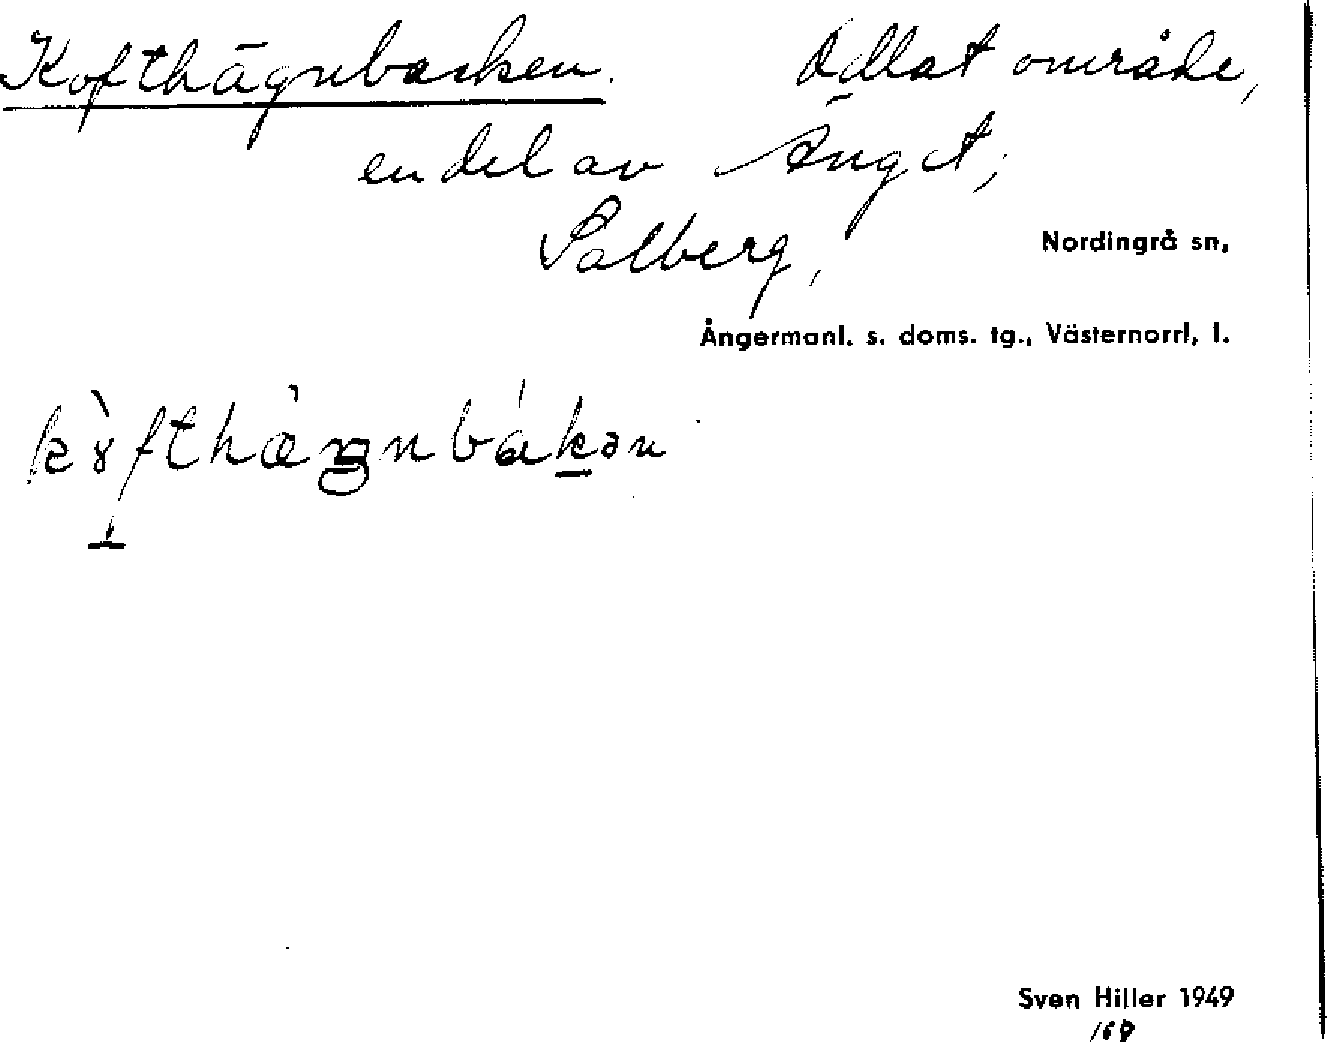 Kofthägnbacken. Odlat område,
en del av Änget,
Salberg, Nordingrå sn,
Ångermanl. s. doms. tg., Västernorrl, l.
Sven Hiller 1949